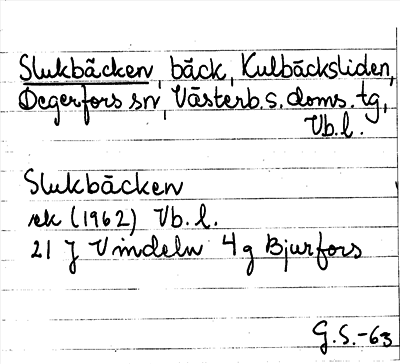 Slukbäcken, bäck, Kulbäcksliden,
Degerfors sn, Västerb. s. doms. tg,
Vb. l.
Slukbäcken
ek (1962) Vb. l.
21 J Vindeln 4 g Bjurfors
G.S.-63